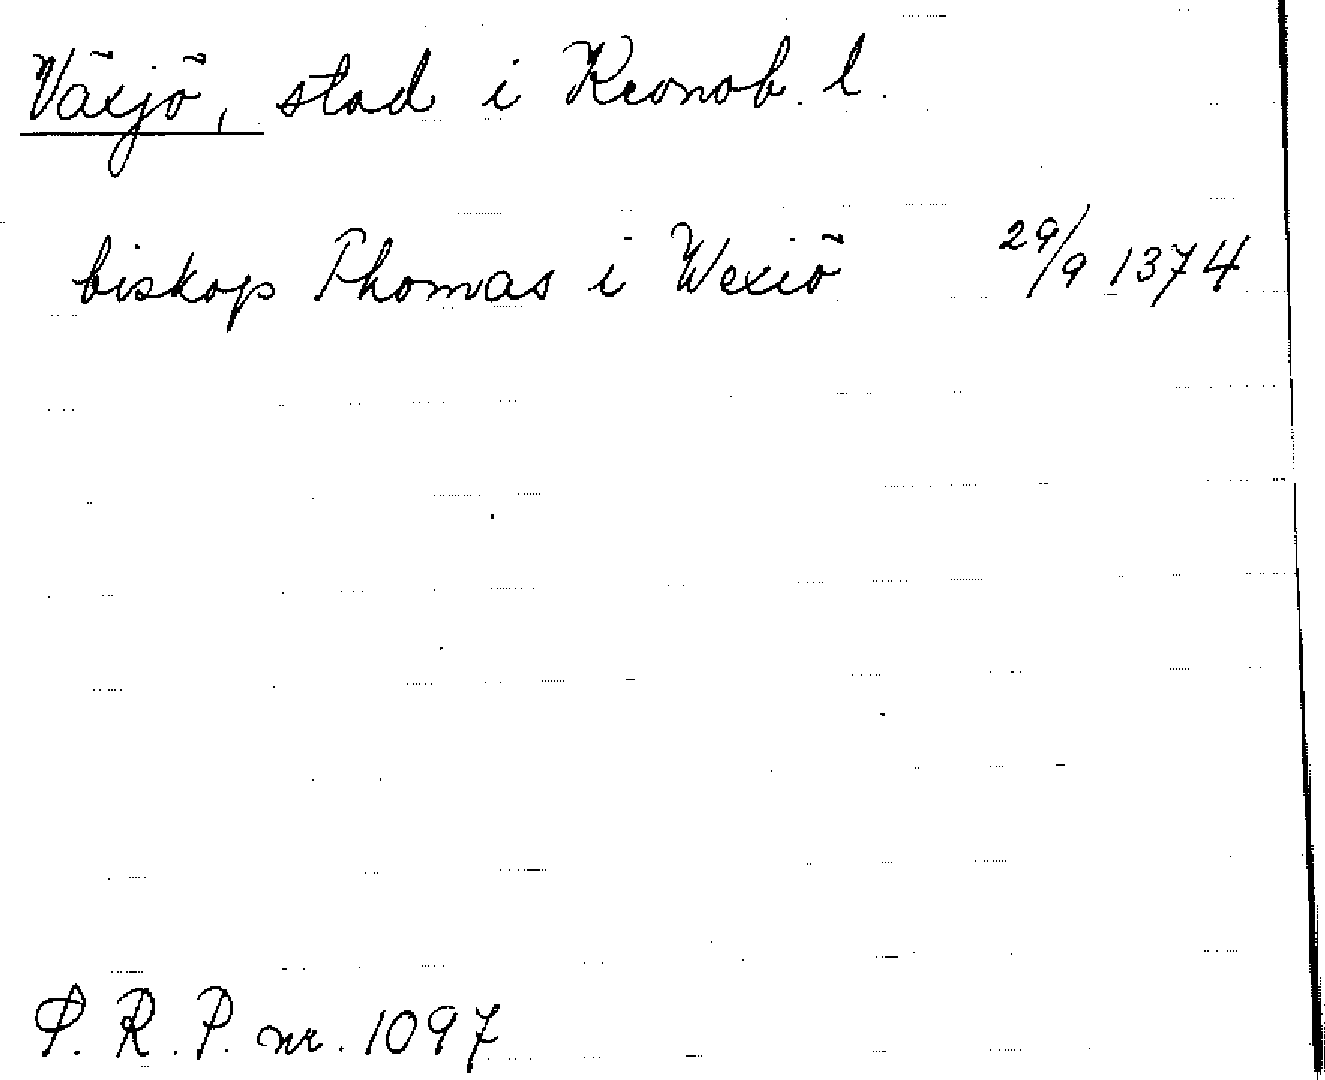 Växjö, stad i Kronob. l.
biskop Thomas i Wexiö 29/9 1374
P. R. P. nr. 1097